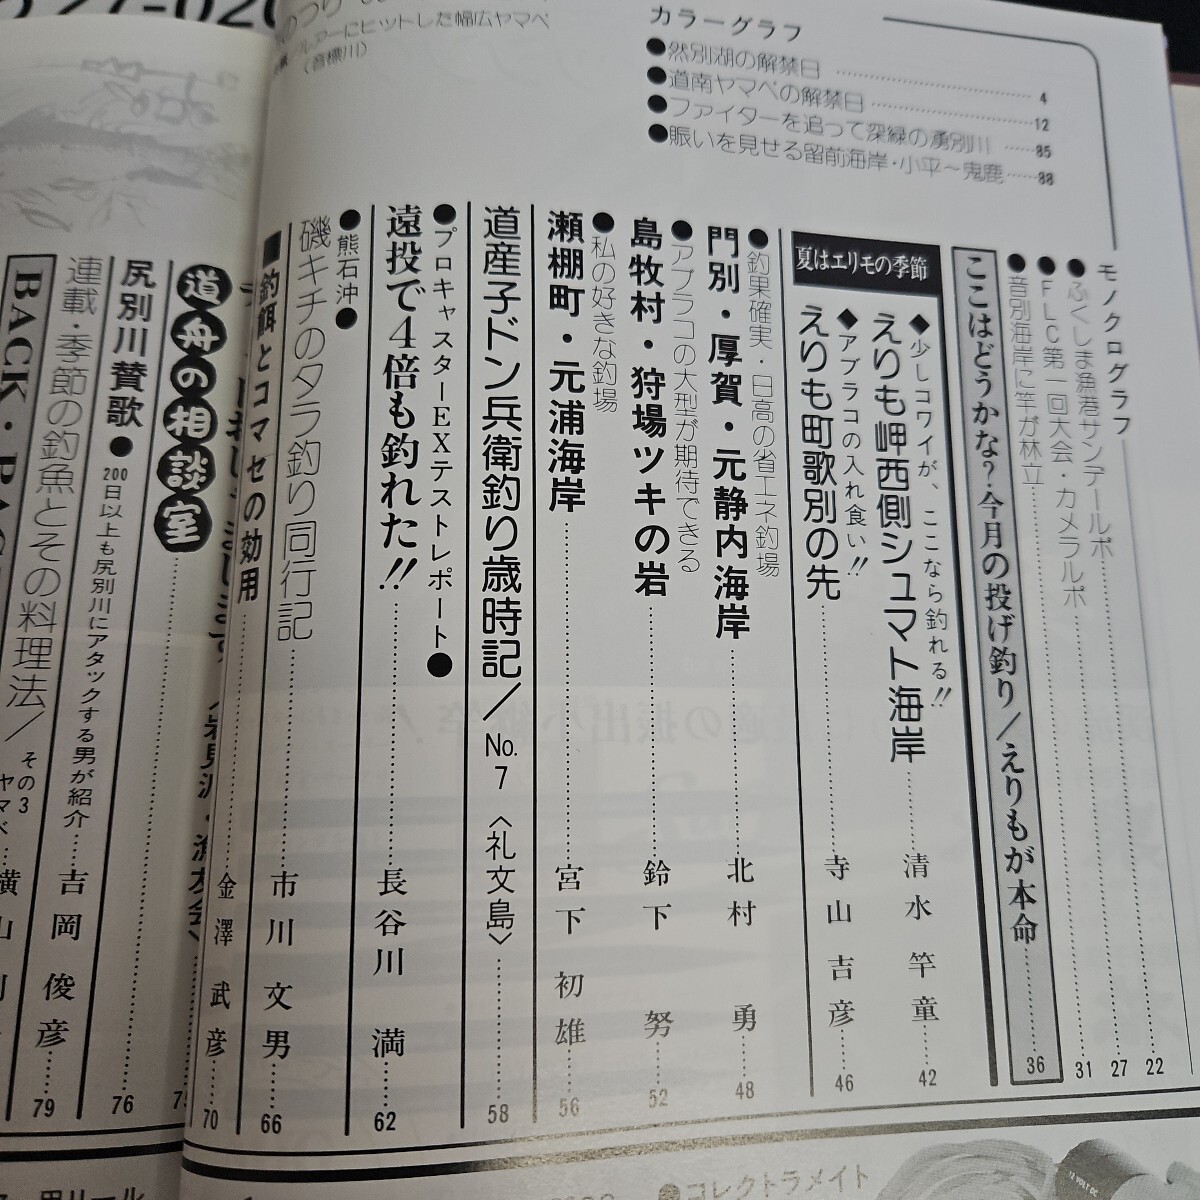 ルアーにヒットした幅広ヤマベ
(音標川)
カラーグラフ
●然別湖の解禁日……4
●道南ヤマベの解禁日……12
●ファイターを追って深緑の湧別川……85
●賑いを見せる留萌海岸・小平〜鬼鹿……88
モノクログラフ
●ふくしま漁港サンデールポ……22
●FLC第一回大会・カメラルポ……27
●音別海岸に竿が林立……31
ここはどうかな?今月の投げ釣り/えりもが本命……36
夏はエリモの季節
◆少しコワイが、ここなら釣れる!!
えりも岬西側シュマト海岸……清水竿童……42
◆アブラコの入れ食い!!
えりも町歌別の先……寺山吉彦……46
●釣果確実・日高の省エネ釣場
門別・厚賀・元静内海岸……北村勇……48
●アブラコの大型が期待できる
島牧村・狩場ツキの岩……鈴下努……52
●私の好きな釣場
瀬棚町・元浦海岸……宮下初雄……56
道産子ドン兵衛釣り歳時記/No.7〈礼文島〉……58
●プロキャスターEXテストレポート●
遠投で4倍も釣れた!!……長谷川満……62
●熊石沖●
磯キチのタラ釣り同行記……市川文男……66
■釣餌とコマセの効用……金澤武彦……70
道舟の相談室
尻別川賛歌●200日以上も尻別川にアタックする男が紹介……吉岡俊彦……76
連載・季節の釣魚とその料理法/その3 ヤマベ……横山……79
BACK・
●コレクトラメイト
12 VOLT DC